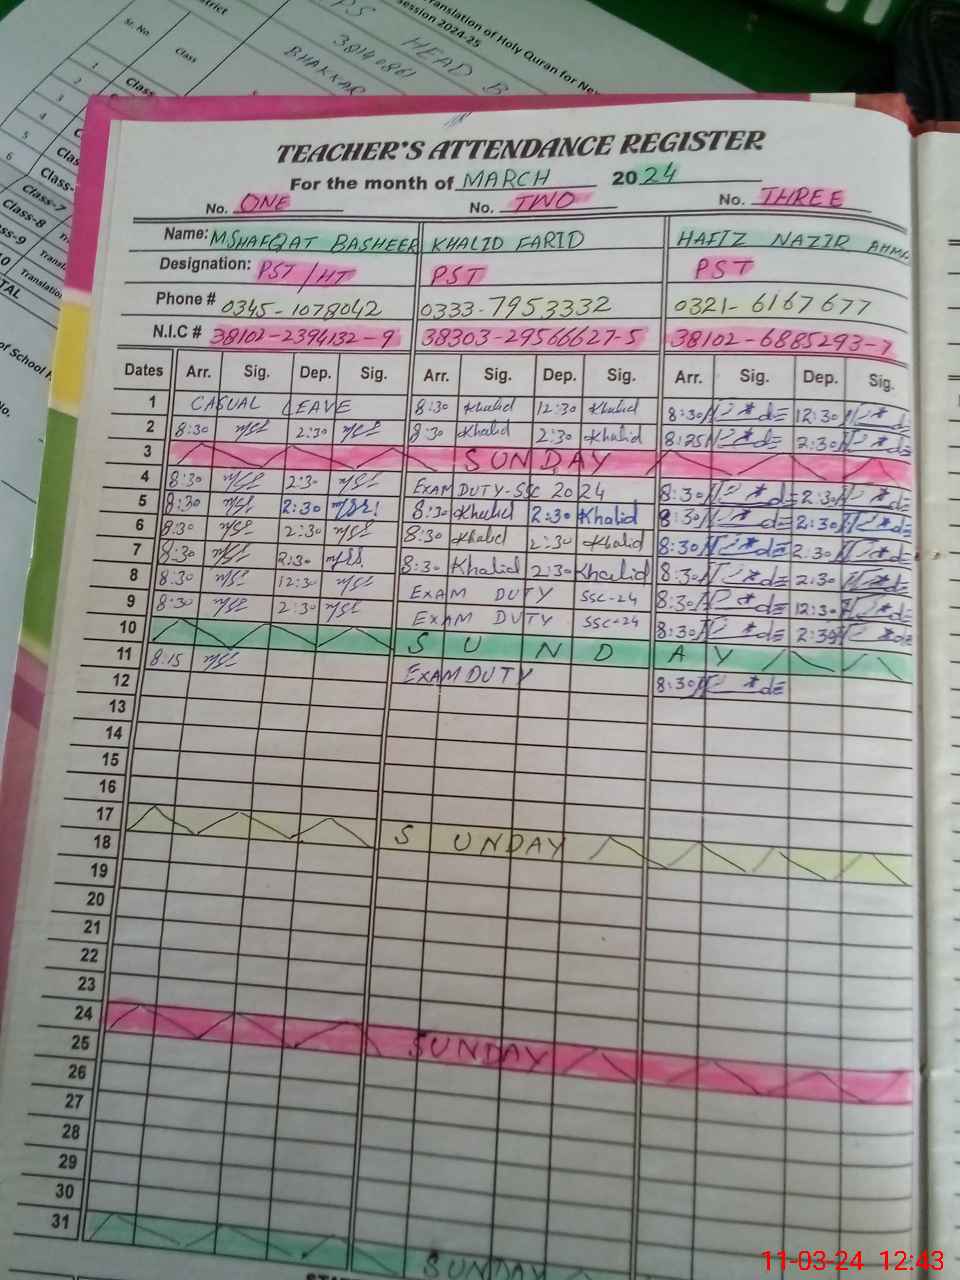 Translation of Holy Quran for Ne
session 2024-25
PS
HEAD B
38140861
BHAKKAR
Sr. No.
Class
TEACHER'S ATTENDANCE REGISTER
For the month of MARCH 2024
No. ONE No. TWO No. THREE
Name: M SHAFQAT BASHEER KHALID FARID HAFIZ NAZIR AHM
Designation: PST / HT PST PST
Phone # 0345-1078042 0333-7953332 0321-6167677
N.I.C # 38102-2394132-9 38303-29566627-5 38102-6885293-7
Dates Arr. Sig. Dep. Sig. Arr. Sig. Dep. Sig. Arr. Sig. Dep. Sig.
1 CASUAL LEAVE 8:30 Khalid 12:30 Khalid 8:30 12:30
2 8:30 2:30 8:30 Khalid 2:30 Khalid 8:25 2:30
3 SUNDAY
4 8:30 2:30 EXAM DUTY-SSC 2024 8:30 2:30
5 8:30 2:30 8:30 Khalid 2:30 Khalid 8:30 2:30
6 8:30 2:30 8:30 Khalid 2:30 Khalid 8:30 2:30
7 8:30 2:30 8:30 Khalid 2:30 Khalid 8:30 2:30
8 8:30 12:30 EXAM DUTY SSC-24 8:30 12:30
9 8:30 2:30 EXAM DUTY SSC-24 8:30 2:30
10 SUNDAY
11 8:15 EXAM DUTY 8:30
12
13
14
15
16
17 SUNDAY
18
19
20
21
22
23
24 SUNDAY
25
26
27
28
29
30
31 SUNDAY
11-03-24 12:43